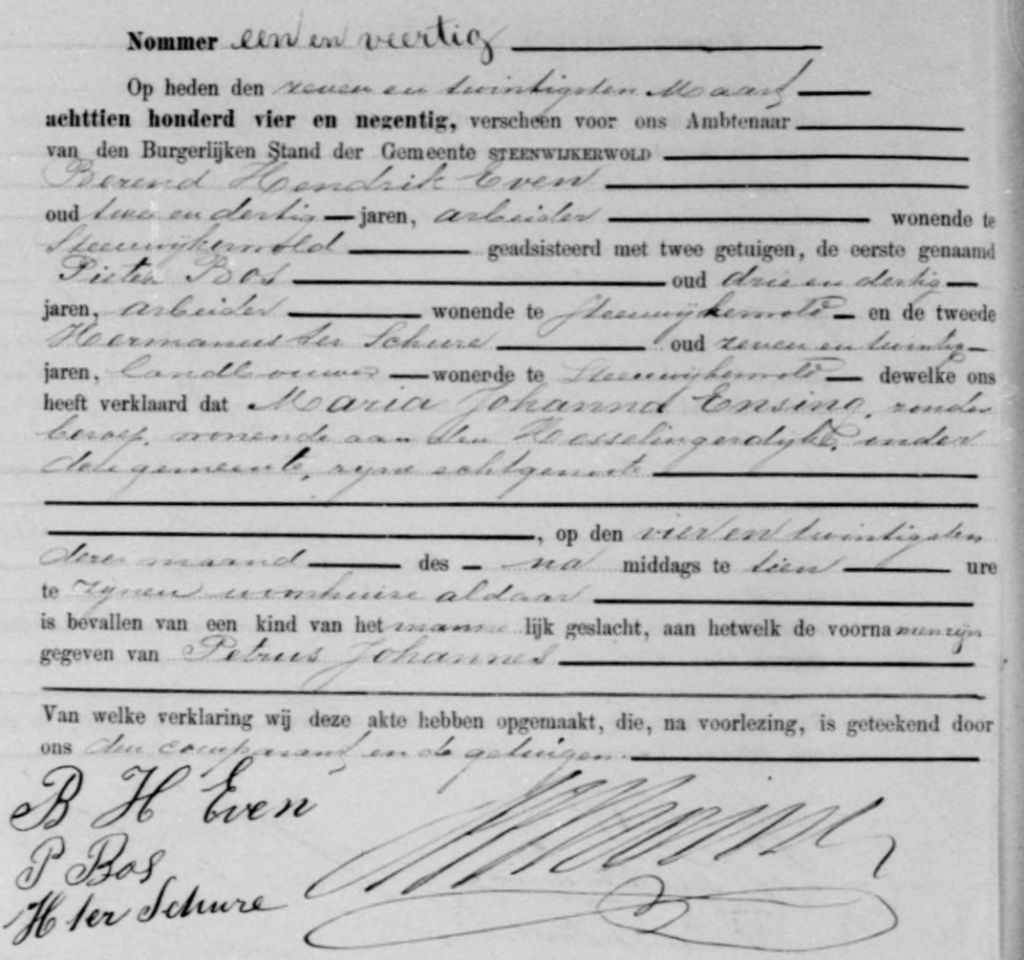 Nommer een en veertig
Op heden den zeven en twintigsten Maart
achttien honderd vier en negentig, verscheen voor ons Ambtenaar
van den Burgerlijken Stand der Gemeente STEENWIJKERWOLD
Berend Hendrik Even
oud twee en dertig jaren, arbeider wonende te
Steenwijkerwold geadsisteerd met twee getuigen, de eerste genaamd
Pieter Bos oud drie en dertig
jaren, arbeider wonende te Steenwijkerwold en de tweede
Hermannus ter Schure oud zeven en twintig
jaren, landbouwer wonende te Steenwijkerwold dewelke ons
heeft verklaard dat Maria Johanna Ensing, zonder
beroep, wonende aan den Hesselingerdijk, onder
deze gemeente, zijne echtgenoote
, op den vier en twintigsten
dezer maand des na middags te tien ure
te zijnen woonhuize aldaar
is bevallen van een kind van het manne lijk geslacht, aan hetwelk de voornamen zijn
gegeven van Petrus Johannes
Van welke verklaring wij deze akte hebben opgemaakt, die, na voorlezing, is geteekend door
ons den comparant en de getuigen.
B H Even
P Bos
H ter Schure